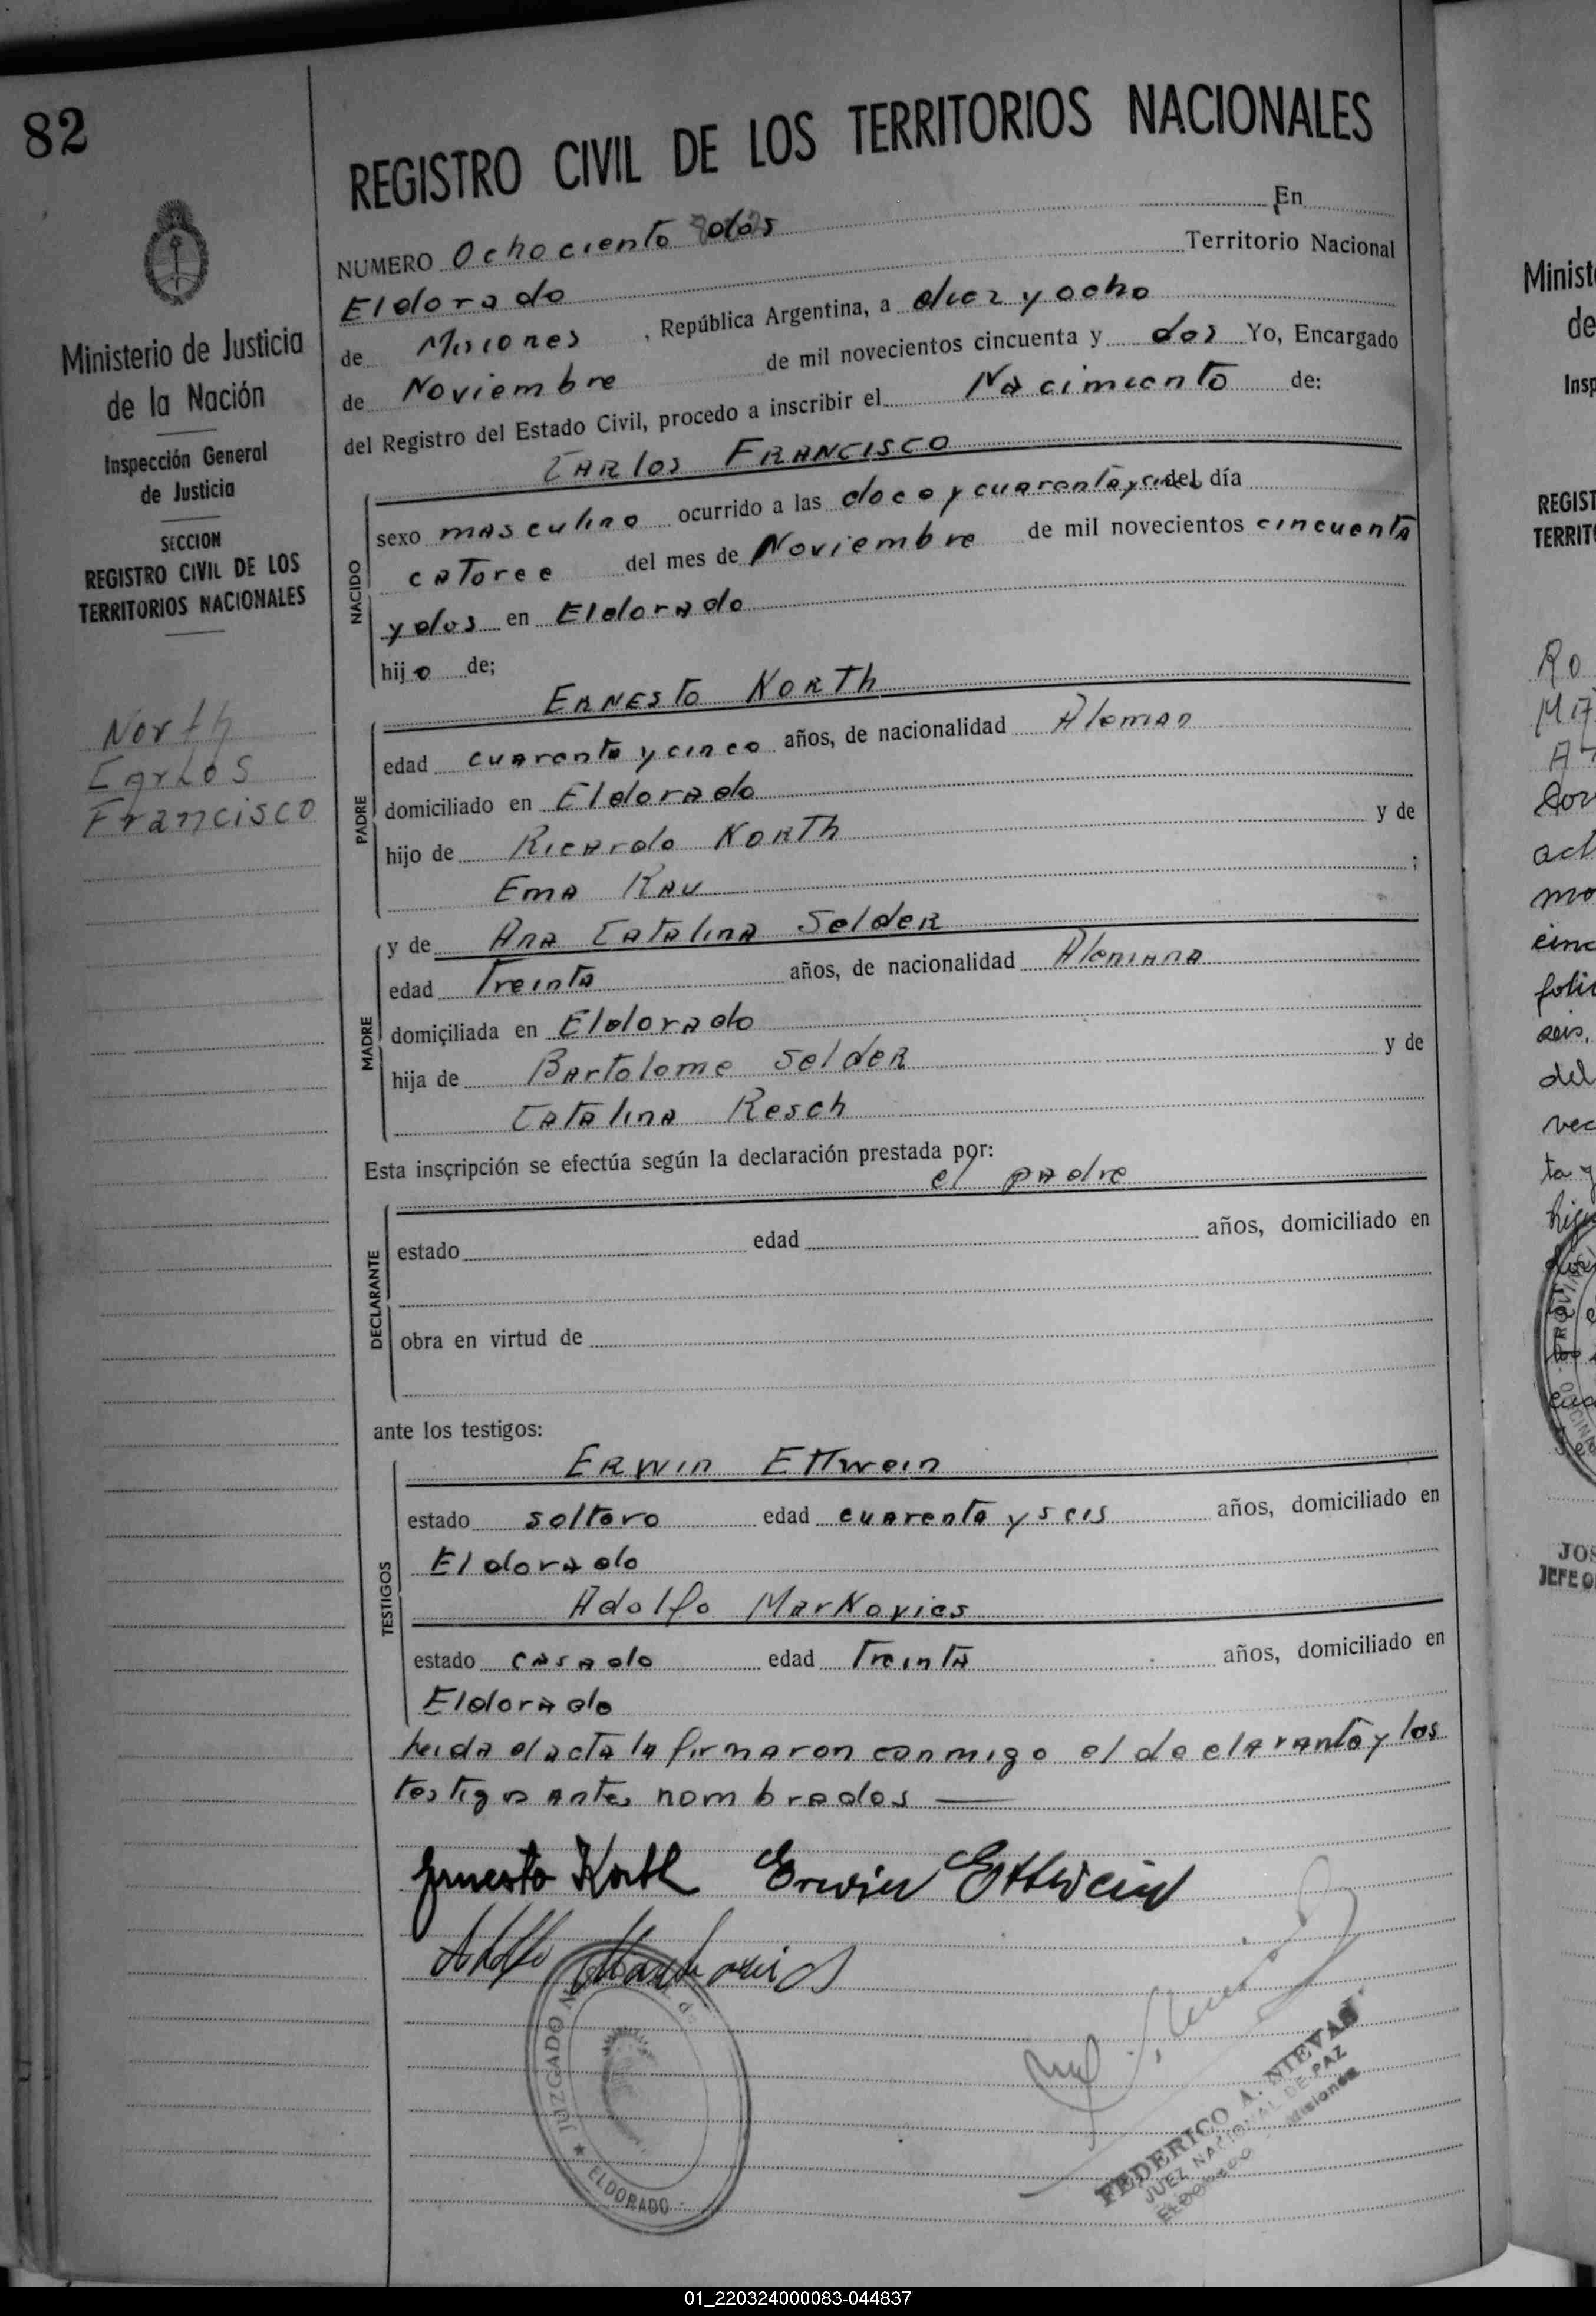 82
REGISTRO CIVIL DE LOS TERRITORIOS NACIONALES
Ministerio de Justicia
de la Nación
Inspección General
de Justicia
SECCION
REGISTRO CIVIL DE LOS
TERRITORIOS NACIONALES
North
Carlos
Francisco
NUMERO Ochociento dos En
Eldorado Territorio Nacional
de Misiones, República Argentina, a diez y ocho
de Noviembre de mil novecientos cincuenta y dos Yo, Encargado
del Registro del Estado Civil, procedo a inscribir el Nacimiento de:
CARlos FRANCISCO
NACIDO
sexo masculino ocurrido a las doce y cuarenta y del día
catorce del mes de Noviembre de mil novecientos cincuenta
y dos en Eldorado
hijo de;
ERNESTO NORTh
PADRE
edad cuarenta y cinco años, de nacionalidad Aleman
domiciliado en Eldorado
hijo de Ricardo NORTh y de
Ema Rau ;
MADRE
y de Ana Catalina Selder
edad Treinta años, de nacionalidad Alemana
domiciliada en Eldorado
hija de Bartolome Selder y de
Catalina Resch
Esta inscripción se efectúa según la declaración prestada por:
el padre
DECLARANTE
estado edad años, domiciliado en
obra en virtud de
ante los testigos:
TESTIGOS
ERwin Ettwein
estado soltero edad cuarenta y seis años, domiciliado en
Eldorado
Adolfo MarNovics
estado casado edad Treinta años, domiciliado en
Eldorado
Leida el acta la firmaron conmigo el declarante y los
testigos antes nombrados
Ernesto North Erwin Ettwein
Adolfo
JUZGADO
ELDORADO
FEDERICO A. NIEVAS
JUEZ NACIONAL DE PAZ
ELDORADO - Misiones
01_220324000083-044837